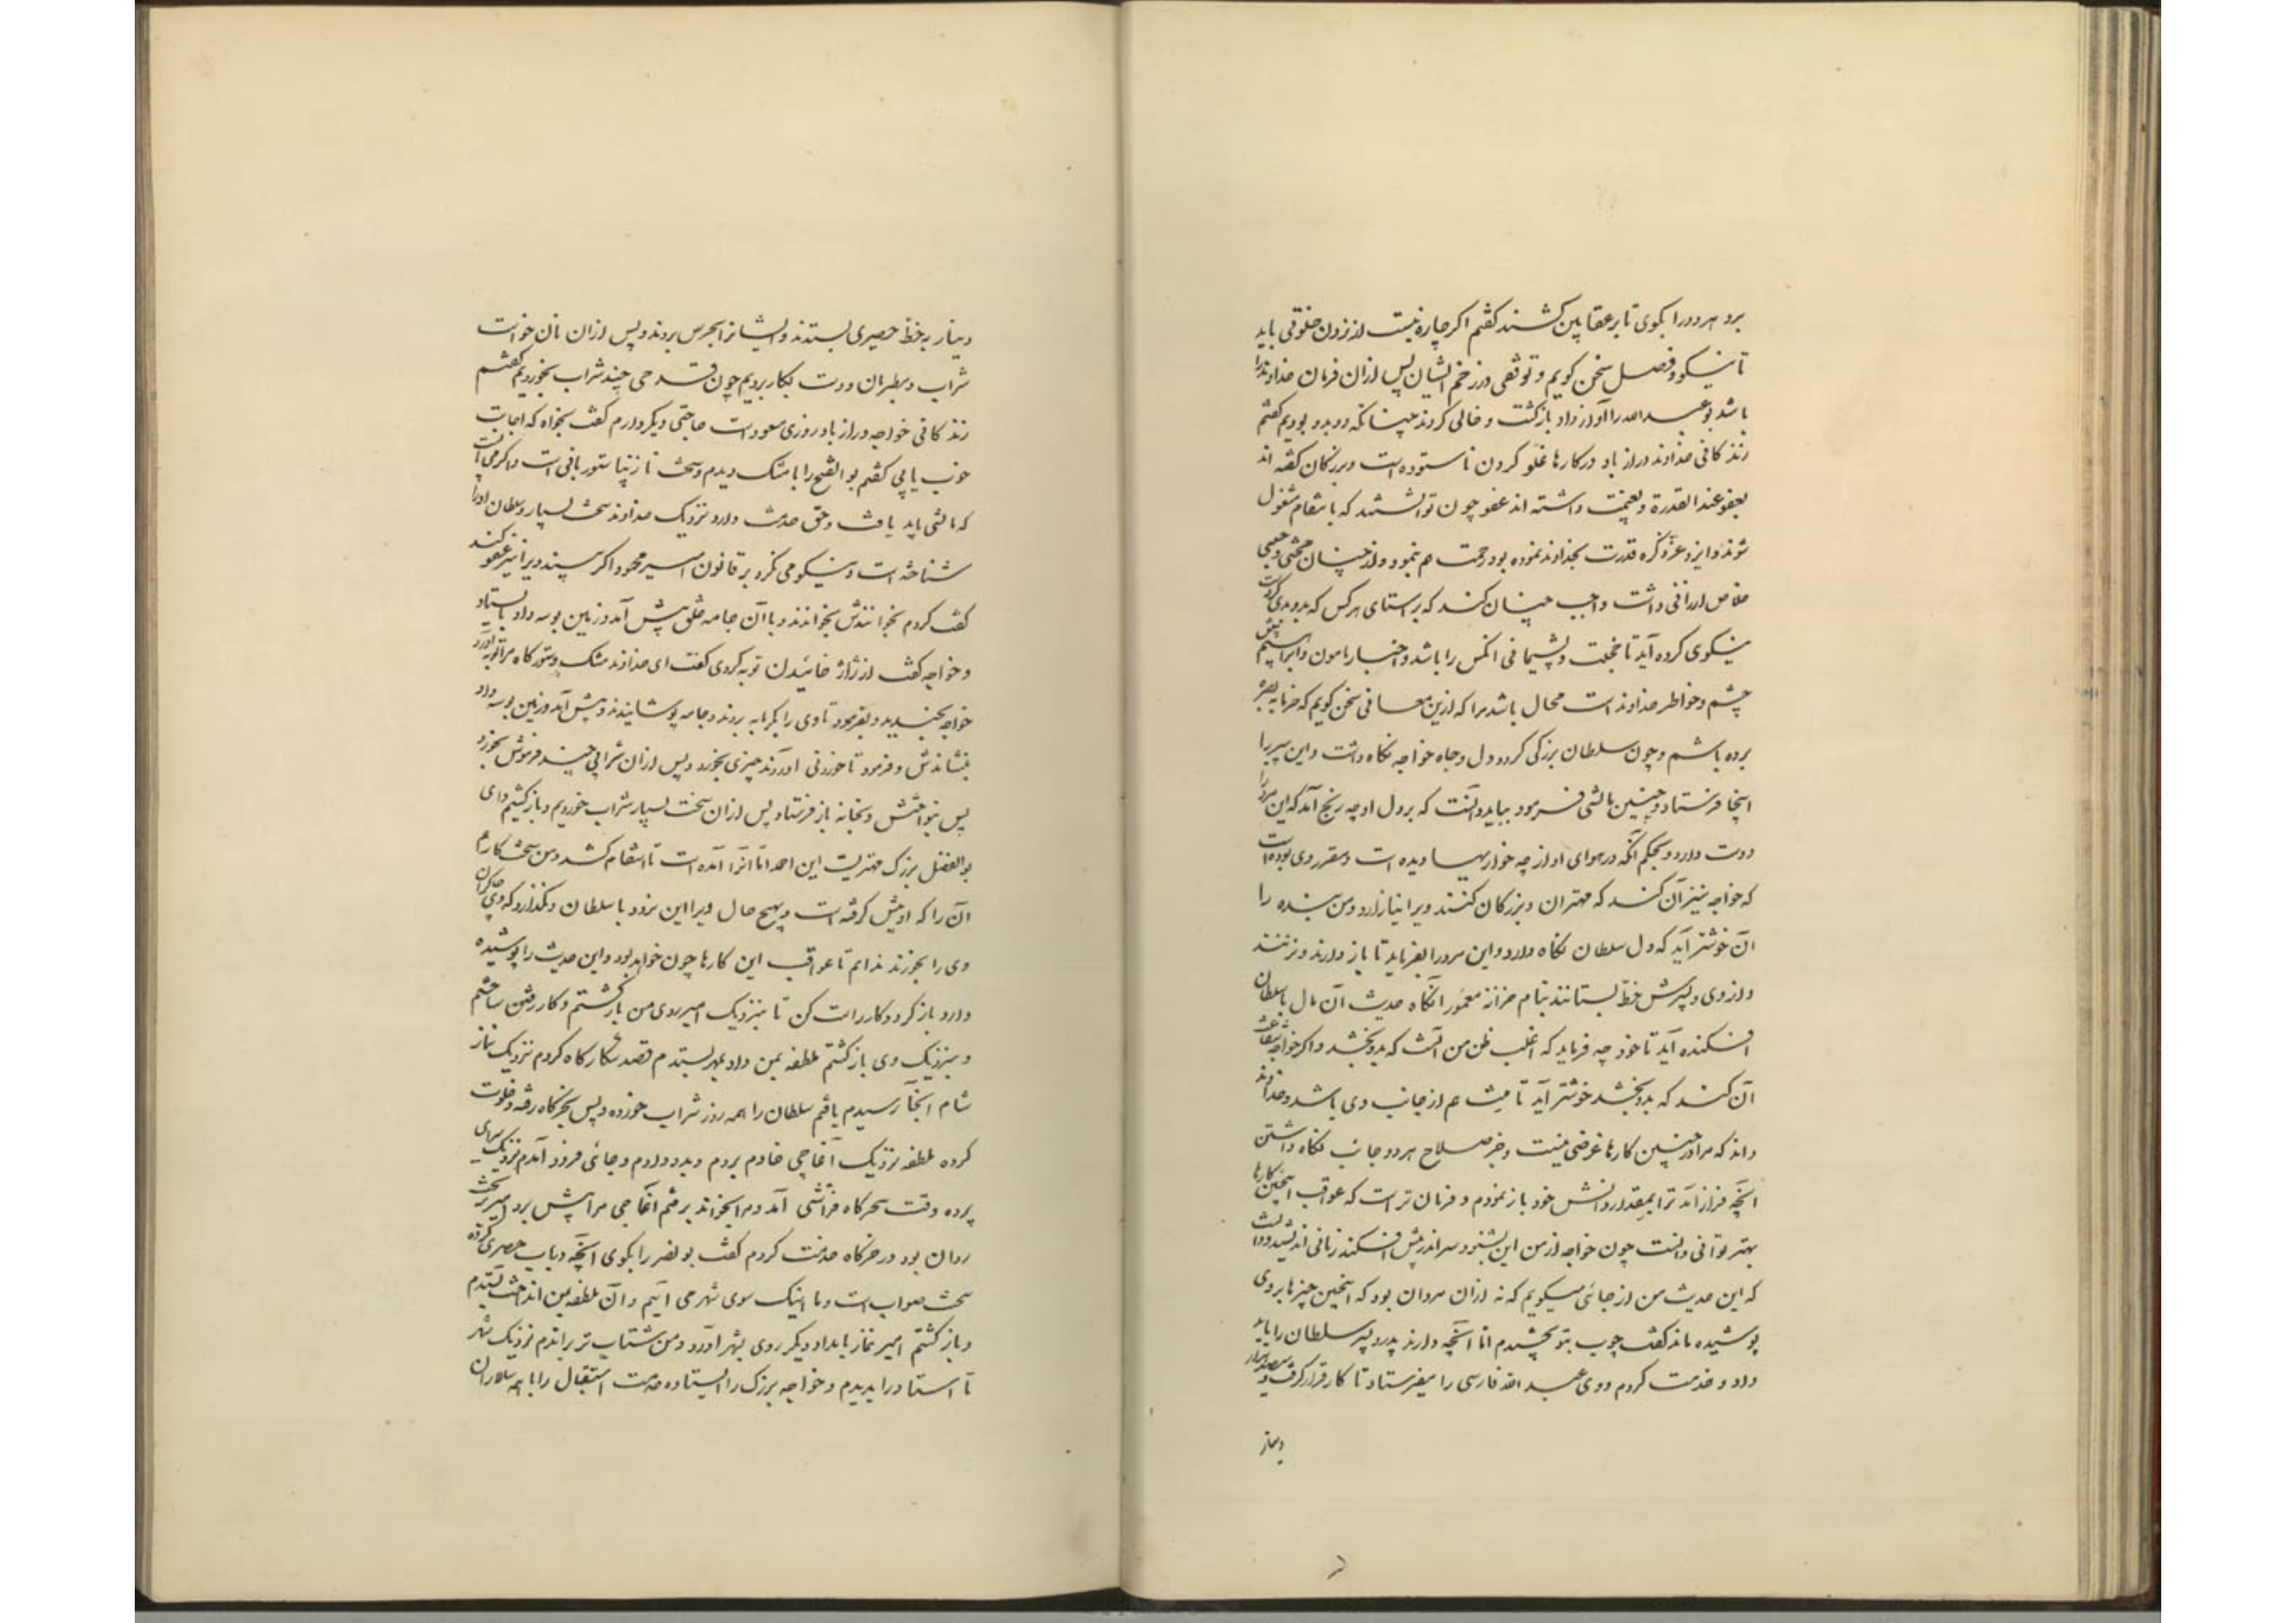 برد هر دو را بگوی تا بر عقابین کشند گفتم اگر چاره نیست از زدن خلوتی باید
تا نیکو و فصل سخن گویم و توقفی در زخم ایشان پس ازان فرمان خداوند را
باشد بو عبدالله را آواز داد بازگشت و خالی کردند چنانکه دو بدو بودیم گفتم
زندگانی خداوند دراز باد در کارها غلو کردن ناستوده است و بزرگان گفته اند
العفو عند القدرة و بغنیمت داشته اند عفو چون توانستند که بانتقام مشغول
شوند و ایزد عز ذکره قدرت بخداوند نموده بود رحمت هم بنمود و از چنان محنتی و حبسی
خلاص ارزانی داشت واجب چنان کند که براستای هر کس که بدو بدی کرده است
نیکوی کرده آید تا خجلت و پشیمانی انکس را باشد و اخبار مامون و ابراهیم پیش
چشم و خاطر خداوند است محال باشد مرا که ازین معانی سخن گویم که خرما به بصره
برده باشم و چون سلطان بزرگی کرد و دل و جاه خواجه نگاه داشت و این پیر را
اینجا فرستاد و چنین مالشی فرمود بباید دانست که بر دل او چه رنج آمد که این مرد را
دوست دارد و بحکم آنکه در هوای او از پدرش چه خواریها دیده است و مقرر وی بوده است
که خواجه نیز آن کند که مهتران و بزرگان کنند ویرا نیازارد و من بنده را
آن خوشتر آید که دل سلطان نگاه دارد و این مرد را بفرماید تا باز دارند و نزنند
و از وی و پسرش خط بستانند بنام خزانه معمور انگاه حدیث آن مال با سلطان
افکنده آید تا خود چه فرماید که اغلب ظن من آنست که بدو بخشد و اگر خواجه شفاعت
آن کند که بدو بخشد خوشتر آید تا منت هم از جانب وی باشد و خداوند
داند که مرا در چنین کارها غرضی نیست و جز صلاح هر دو جانب نگاه داشتن
آنچه فراز آمد ترا بمقدار دانش خود باز نمودم و فرمان تراست که عواقب اینچنین کارها
بهتر توانی دانست چون خواجه از من این بشنود سر اندر پیش افکند زمانی اندیشید و دانست
که این حدیث من از جائی میگویم که نه ازان مردان بود که اینچنین چیزها بر وی
پوشیده ماند گفت چوب بتو بخشیدم اما آنچه دارند پدر و پسر سلطان را باید
داد و خدمت کردم و وی عبد الله فارسی را میفرستاد تا کار قرار گرفت و سیصد هزار
دینار
دینار بخط حصیری بستدند و ایشانرا بحرس بردند و پس ازان نان خواست
شراب و مطربان و دست بکار بردیم چون قدحی چند شراب بخوردیم گفتم
زندگانی خواجه دراز باد روزی مسعود است حاجتی دیگر دارم گفت بخواه که اجابت
خوب یابی گفتم بو الفتح را با مشک دیدم و سخت نازیبا ستوربانی است و اگر می آنست
که مالشی باید یافت و حق خدمت دارد نزدیک خداوند سخت بسیار و سلطان او را
شناخته است و نیکو می نگرد بر قانون امیر محمود اگر بیند ویرا نیز عفو کند
گفت کردم بخوانندش بخواندند و با آن جامه خلق پیش آمد و زمین بوسه داد بایستاد
و خواجه گفت از ژاژ خائیدن توبه کردی گفت ای خداوند مشک و ستورگاه مرا توبه آورد
خواجه بخندید و بفرمود تا وی را بگرمابه بردند و جامه پوشانیدند و پیش آمد و زمین بوسه داد
بنشاندش و فرمود تا خوردنی آوردند چیزی بخورد و پس ازان شرابی چند فرمودش بخورد
پس بنواختش و بخانه باز فرستاد پس ازان سخت بسیار شراب خوردیم و باز گشتیم و ای
بو الفضل بزرگ مهتریست این احمد اما آنرا آمده است تا انتقام کشد و من سخت کارهم
آن را که او پیش گرفته است و بهیچ حال ویرا این نرود با سلطان و نگذارد که وی چاکران
وی را بخورند ندانم تا عواقب این کارها چون خواهد بود و این حدیث را پوشیده
دار و باز گرد و کار راست کن تا بنزدیک امیر روی من بازگشتم و کار رفتن ساختم
و بنزدیک وی باز گشتم ملطفه بمن داد بمهر بستدم قصد شکارگاه کردم نزدیک نماز
شام آنجا رسیدم یافتم سلطان را همه روز شراب خورده و پس بخرگاه رفته و خلوت
کرده ملطفه نزدیک آغاجی خادم بردم و بدو دادم و جائی فرود آمدم نزدیک سرای
پرده وقت سحرگاه فراشی آمد و مرا بخواند برفتم آغاجی مرا پیش برد امیر بر تخت
روان بود در خرگاه خدمت کردم گفت بو نصر را بگوی آنچه در باب حصیری کرده
سخت صواب است و ما اینک سوی شهر می آییم و آن ملطفه بمن انداخت بستدم
و باز گشتم امیر نماز بامداد دیگر روی بشهر آورد و من شتاب تر براندم نزدیک شهر
تا استاد را بدیدم و خواجه بزرگ را ایستاده خدمت استقبال را با همه سالاران